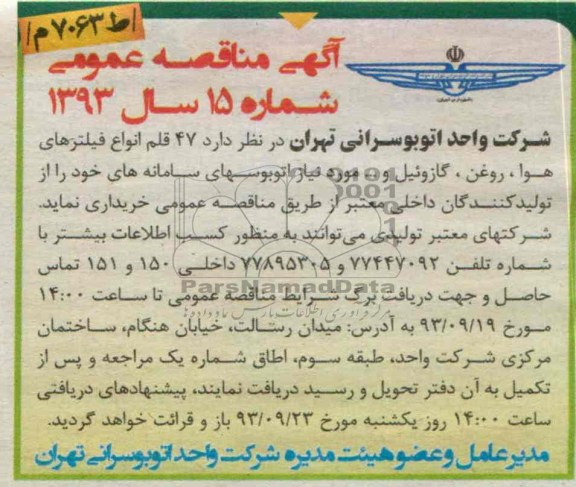 اط ۷۰۶۳ م/
آگهی مناقصه عمومی
شماره ۱۵ سال ۱۳۹۳
شرکت واحد اتوبوسرانی تهران در نظر دارد ۴۷ قلم انواع فیلترهای
هوا ، روغن ، گازوئیل و ... مورد نیاز اتوبوسهای سامانه های خود را از
تولیدکنندگان داخلی معتبر از طریق مناقصه عمومی خریداری نماید.
شرکتهای معتبر تولیدی می‌توانند به منظور کسب اطلاعات بیشتر با
شماره تلفن ۷۷۴۴۷۰۹۲ و ۷۷۸۹۵۳۰۵ داخلی ۱۵۰ و ۱۵۱ تماس
ParsNamadData
حاصل و جهت دریافت برگ شرایط مناقصه عمومی تا ساعت ۱۴:۰۰
مرکز فرآوری اطلاعات پارس نماد داده ها
مورخ ۹۳/۰۹/۱۹ به آدرس: میدان رسالت، خیابان هنگام، ساختمان
مرکزی شرکت واحد، طبقه سوم، اطاق شماره یک مراجعه و پس از
تکمیل به آن دفتر تحویل و رسید دریافت نمایند، پیشنهادهای دریافتی
ساعت ۱۴:۰۰ روز یکشنبه مورخ ۹۳/۰۹/۲۳ باز و قرائت خواهد گردید.
مدیرعامل و عضو هیئت مدیره شرکت واحد اتوبوسرانی تهران